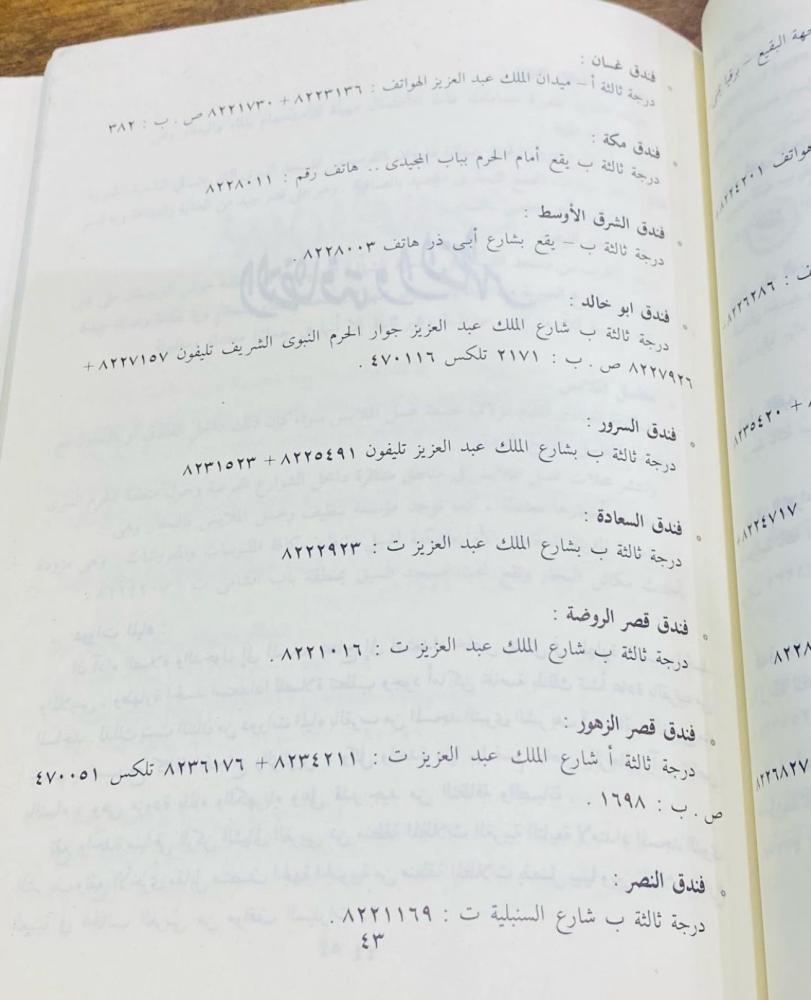 فندق غسان :
درجة ثالثة أ – ميدان الملك عبد العزيز الهواتف : ٨٢٢٣١٣٦ + ٨٢٢١٧٣٠ ص . ب : ٣٨٢
فندق مكة :
درجة ثالثة ب يقع أمام الحرم بباب المجيدى .. هاتف رقم : ٨٢٢٨٠١١
فندق الشرق الأوسط :
درجة ثالثة ب – يقع بشارع أبى ذر هاتف ٨٢٢٨٠٠٣ .
فندق ابو خالد :
درجة ثالثة ب شارع الملك عبد العزيز جوار الحرم النبوى الشريف تليفون ٨٢٢٧١٥٧ +
٨٢٢٧٩٢٦ ص . ب : ٢١٧١ تلكس ٤٧٠١١٦ .
فندق السرور :
درجة ثالثة ب بشارع الملك عبد العزيز تليفون ٨٢٢٥٤٩١ + ٨٢٣١٥٢٣
فندق السعادة :
درجة ثالثة ب بشارع الملك عبد العزيز ت : ٨٢٢٢٩٢٣
فندق قصر الروضة :
درجة ثالثة ب شارع الملك عبد العزيز ت : ٨٢٢١٠١٦ .
فندق قصر الزهور :
درجة ثالثة أ شارع الملك عبد العزيز ت : ٨٢٣٤٢١١ + ٨٢٣٦١٧٦ تلكس ٤٧٠٠٥١
ص . ب : ١٦٩٨ .
فندق النصر :
درجة ثالثة ب شارع السنبلية ت : ٨٢٢١١٦٩ .
٤٣